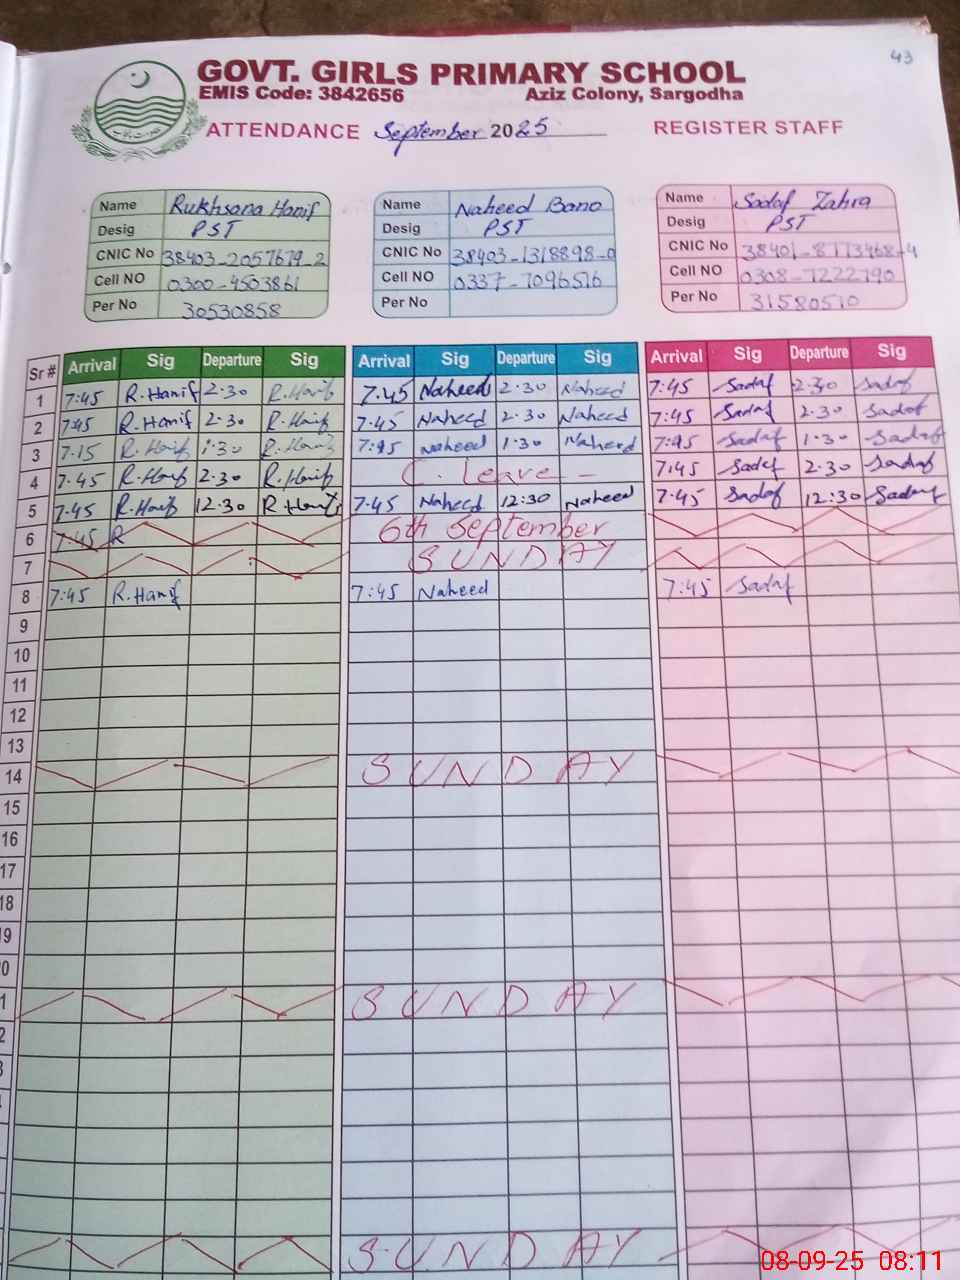 43
GOVT. GIRLS PRIMARY SCHOOL
EMIS Code: 3842656 Aziz Colony, Sargodha
ATTENDANCE September 2025 REGISTER STAFF
Name Rukhsana Hanif
Desig PST
CNIC No 38403-2057679-2
Cell NO 0300-4503861
Per No 30530858
Name Naheed Bano
Desig PST
CNIC No 38403-1318898-0
Cell NO 0337-7096516
Per No
Name Sadaf Zahra
Desig PST
CNIC No 38401-8773468-4
Cell NO 0308-7222790
Per No 31580510
Sr # Arrival Sig Departure Sig Arrival Sig Departure Sig Arrival Sig Departure Sig
1 7:45 R.Hanif 2.30 R.Hanif 7.45 Naheed 2.30 Naheed 7:45 Sadaf 2.30 Sadaf
2 7:45 R.Hanif 2.30 R.Hanif 7.45 Naheed 2.30 Naheed 7:45 Sadaf 2.30 Sadaf
3 7.15 R.Hanif 1:30 R.Hanif 7:45 Naheed 1.30 Naheed 7:45 Sadaf 1.30 Sadaf
4 7.45 R.Hanif 2.30 R.Hanif C. leave - 7:45 Sadaf 2.30 Sadaf
5 7.45 R.Hanif 12.30 R.Hanif 7:45 Naheed 12:30 Naheed 7.45 Sadaf 12:30 Sadaf
6 7:45 R 6th September
7 SUNDAY
8 7:45 R.Hanif 7:45 Naheed 7:45 Sadaf
9
10
11
12
13
14 SUNDAY
15
16
17
18
19
20
1 SUNDAY
2
3
SUNDAY
08-09-25 08:11